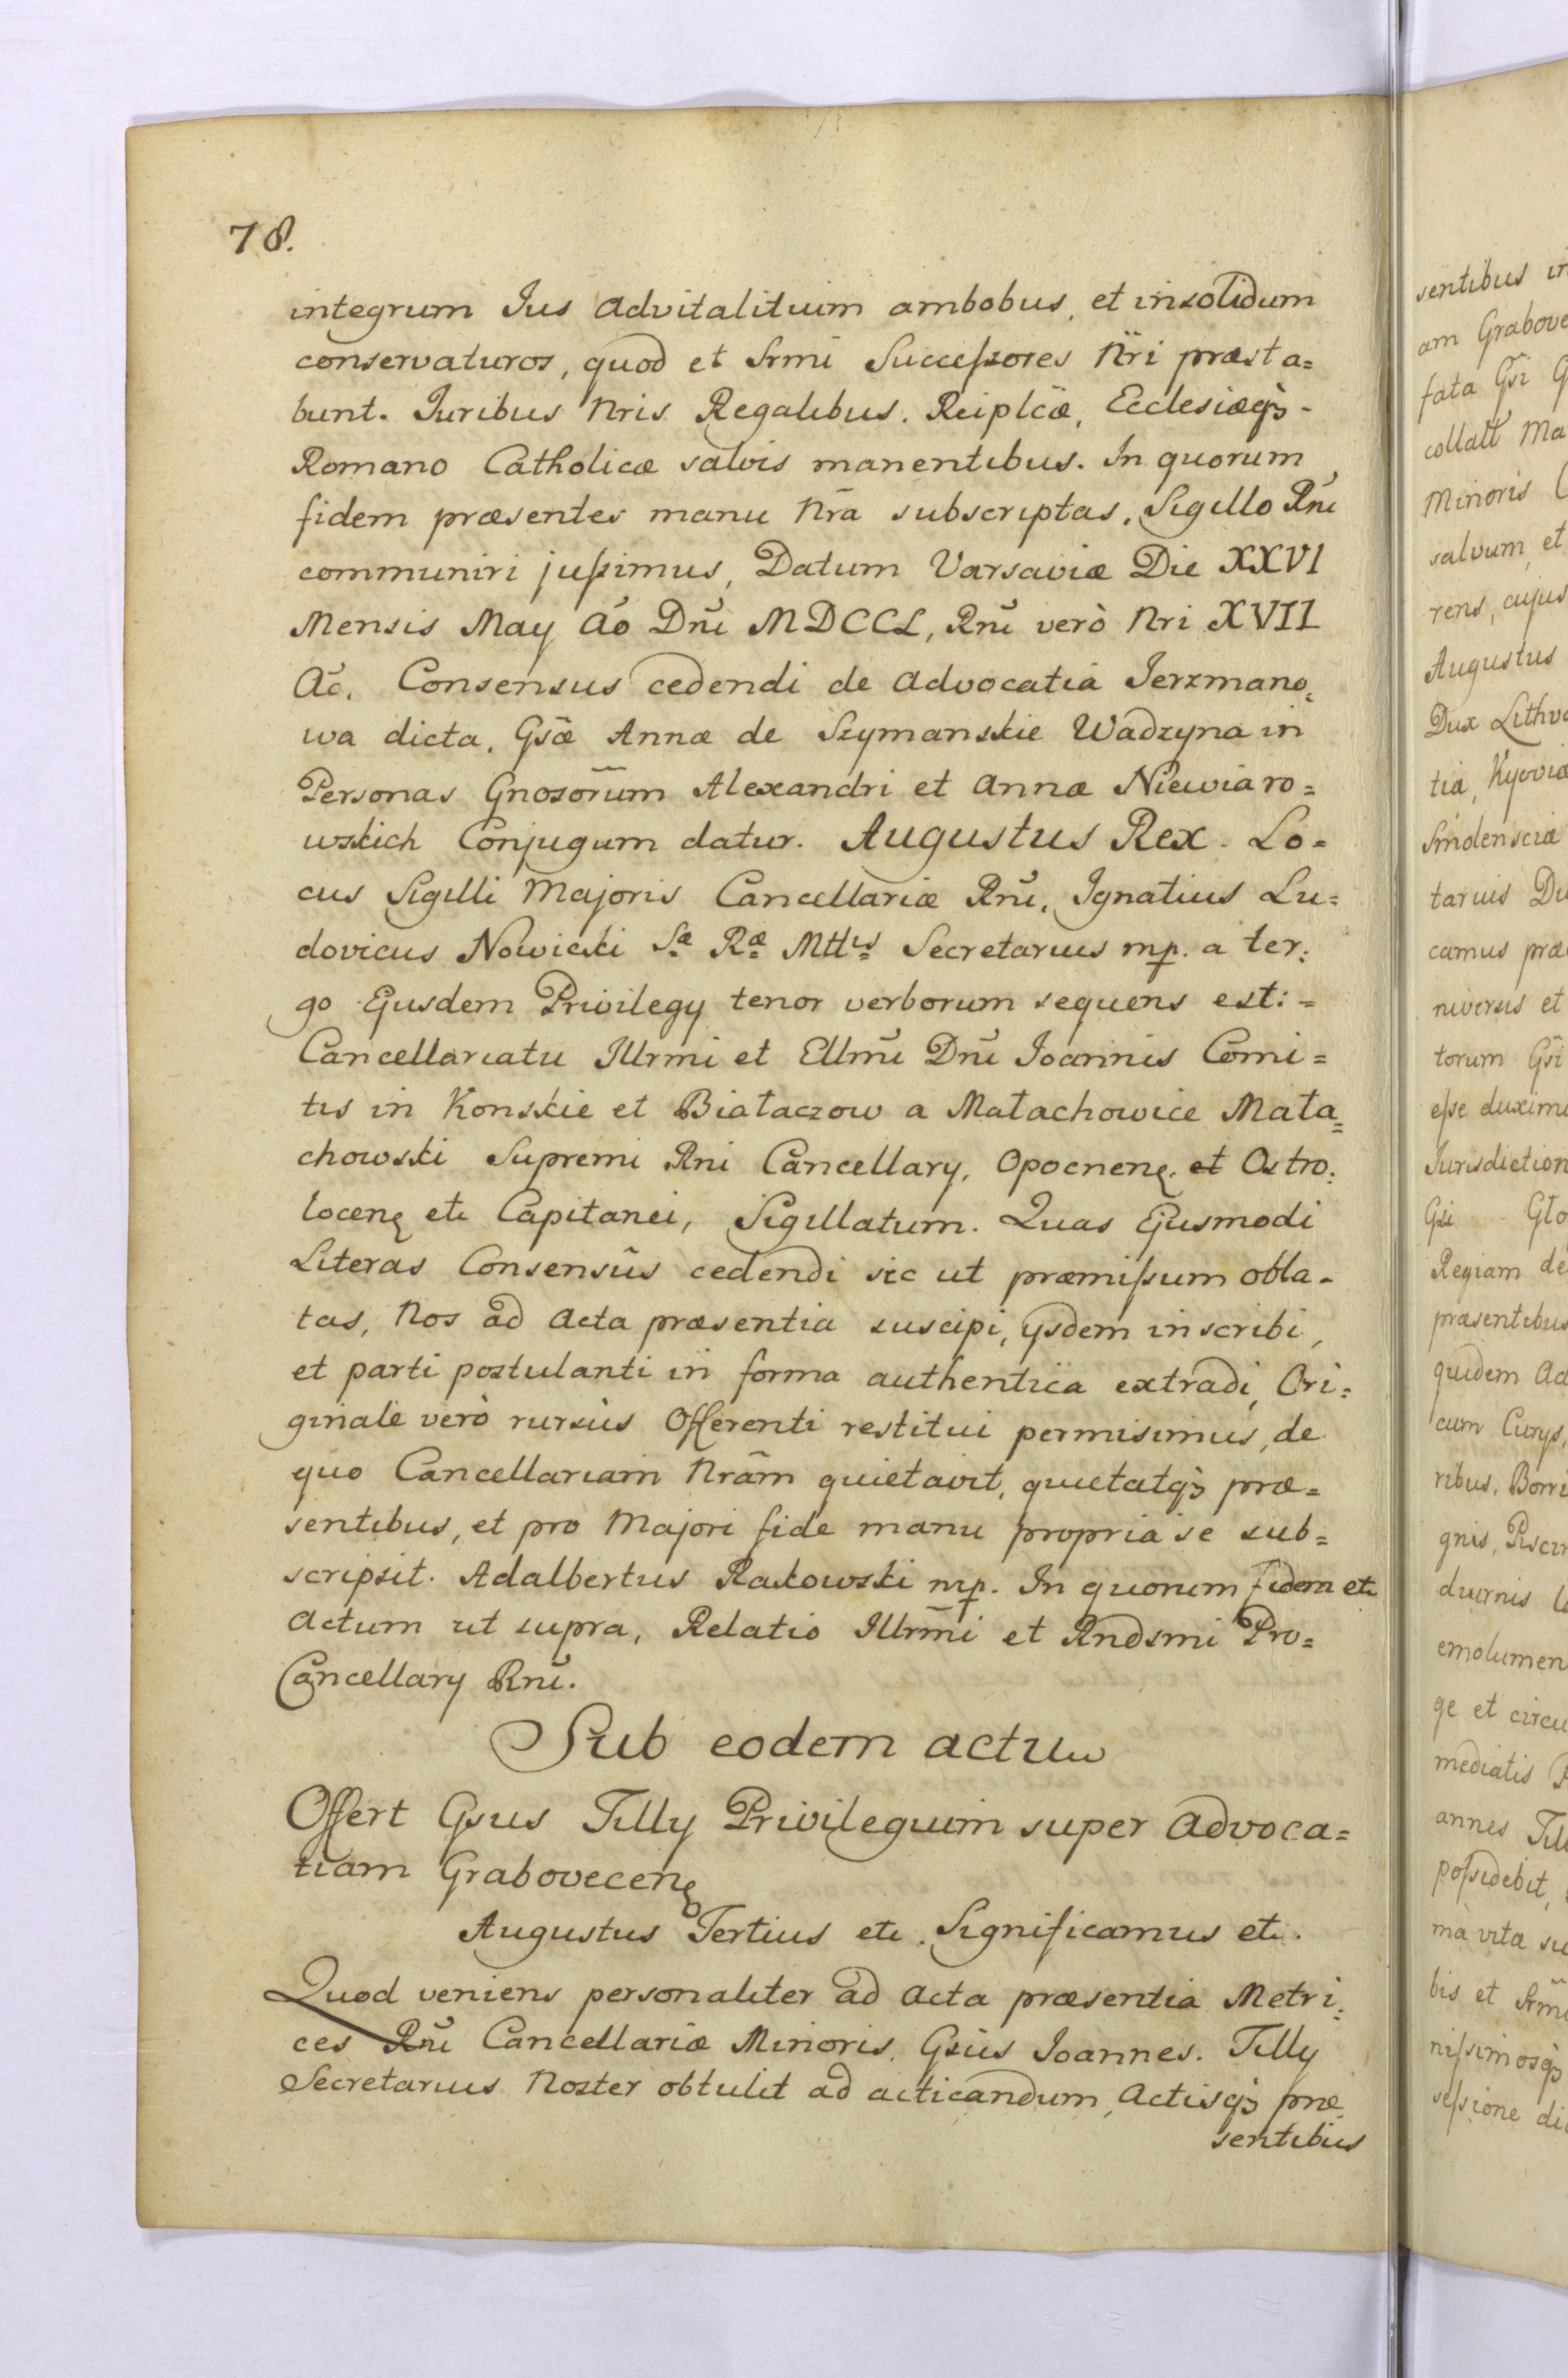 78.
integrum Jus advitalituim ambobus, et insolidum
conservaturos, quod et Srmi Succeſsores Nri præsta=
bunt. Juribus Nris Regalibus. Reiplcæ, Ecclesiæqꝫ-
Romano Catholicæ salvis manentibus. In quorum
fidem præsentes manu Nrā subscriptas, Sigillo Rnī
communiri juſsimus, Datum Varsaviæ Die XXVI
Mensis May Ao Dnī MDCCL, Rnī verò Nri XVII
Ao. Consensus cedendi de Advocatia Jerzmano=
wa dicta, Gsæ Annæ de Szymanskie Wadzyna in
Personas Gnosorum Alexandri et Annæ Niewiaro=
wskich Conjugum datur. Augustus Rex. Lo=
cus Sigilli Majoris Cancellariæ Rnī, Ignatius Lu=
dovicus Nowicki Sæ Ræ Mttis Secretarius mp. a ter=
go Ejusdem Privilegy tenor verborum sequens est:=
Cancellariatu Illrmi et Ellmī Dnī Joannis Comi=
tis in Konskie et Białaczow a Małachowice Mała=
chowski Supremi Rni Cancellary, Opocnenę. et Ostro=
locenę etc Capitanei, Sigillatum. Quas Ejusmodi
Literas Consensûs cedendi sic ut præmiſsum obla-
tas, Nos ad Acta præsentia suscipi, ysdem inscribi,
et parti postulanti in forma authentica extradi, Ori=
ginale verò rursùs Offerenti restitui permisimus, de
quo Cancellariam Nrām quietavit, quietatqꝫ præ=
sentibus, et pro Majori fide manu propria se sub=
scripsit. Adalbertus Rakowski mp. In quorum fidem etc
Actum ut supra, Relatio Illrmi et Rndsmi Pro=
Cancellary Rnī.
Sub eodem actu
Offert Gsus Tilly Privilegium super Advoca=
tiam Grabovecenę
Augustus Tertius etc. Significamus etc.
Quod veniens personaliter ad Acta præsentia Metri=
ces Rnī Cancellariæ Minoris, Gsus Joannes. Tilly
Secretarius Noster obtulit ad acticandum, Actisqꝫ præ
sentibus
sentibus in
am Grabove
fata Gsi G
collatt Ma
Minoris C
salvum, et
rens, cujus
Augustus
Dux Lithva
tia, Kyoviæ
Smolensciæ
tarius Du
camus præ
niversis et
torum Gsi
eſse duximu
Jurisdiction
Gsi Gło
Regiam de
præsentibus
quidem Ad
cum Curys,
ribus, Borri
gnis, Piscin
duernis l
emolumen
ge et circu
mediatis P
annes Till
poſsidebit,
mà vitæ su
bis et Srmi
niſsimosqꝫ
seſsione di